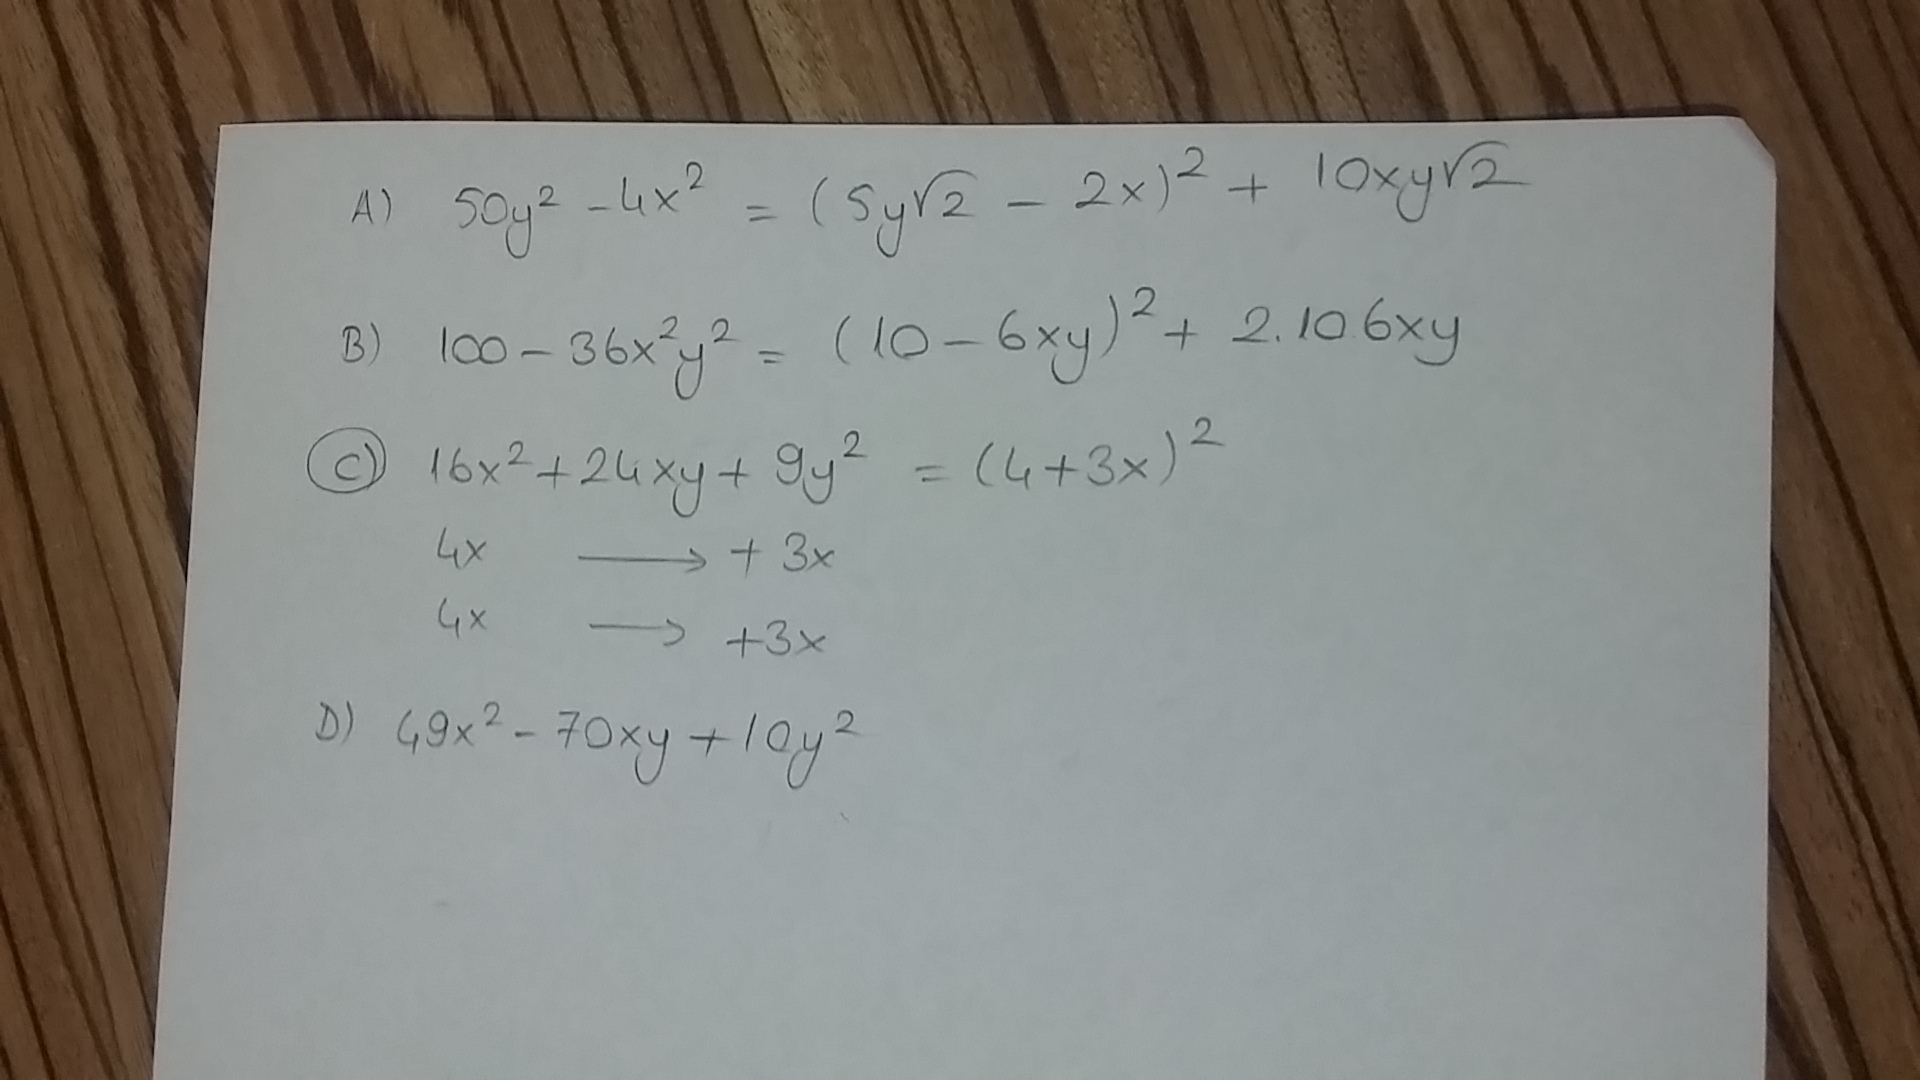 A) 50y² - 4x² = (5y√2 - 2x)² + 10xy√2
B) 100 - 36x²y² = (10 - 6xy)² + 2.10.6xy
C) 16x² + 24xy + 9y² = (4+3x)²
4x → + 3x
4x → +3x
D) 49x² - 70xy + 10y²